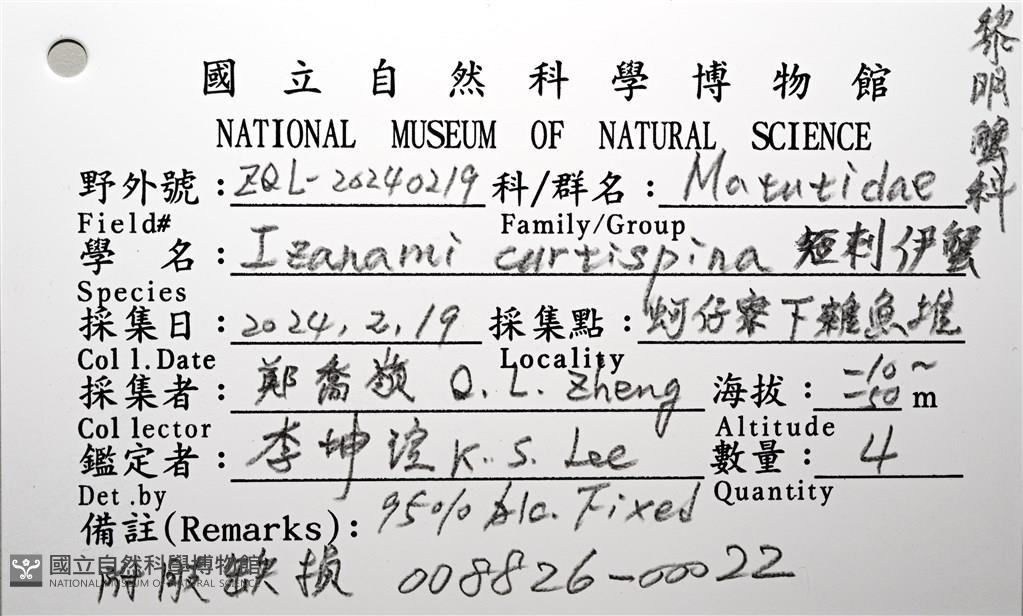 黎明蟹科
國立自然科學博物館
NATIONAL MUSEUM OF NATURAL SCIENCE
野外號：ZQL-20240219 科/群名：Matutidae
Field# Family/Group
學 名：Izanami curtispina 短刺伊蟹
Species
採集日：2024.2.19 採集點：蚵仔寮下雜魚堆
Coll.Date Locality
採集者：鄭喬嶺 Q.L.Zheng 海拔：-10~-50 m
Collector Altitude
鑑定者：李坤瑄 K.S.Lee 數量：4
Det.by Quantity
備註(Remarks)：95% Alc. Fixed
附肢缺損 008826-00022
國立自然科學博物館
NATIONAL MUSEUM OF NATURAL SCIENCE